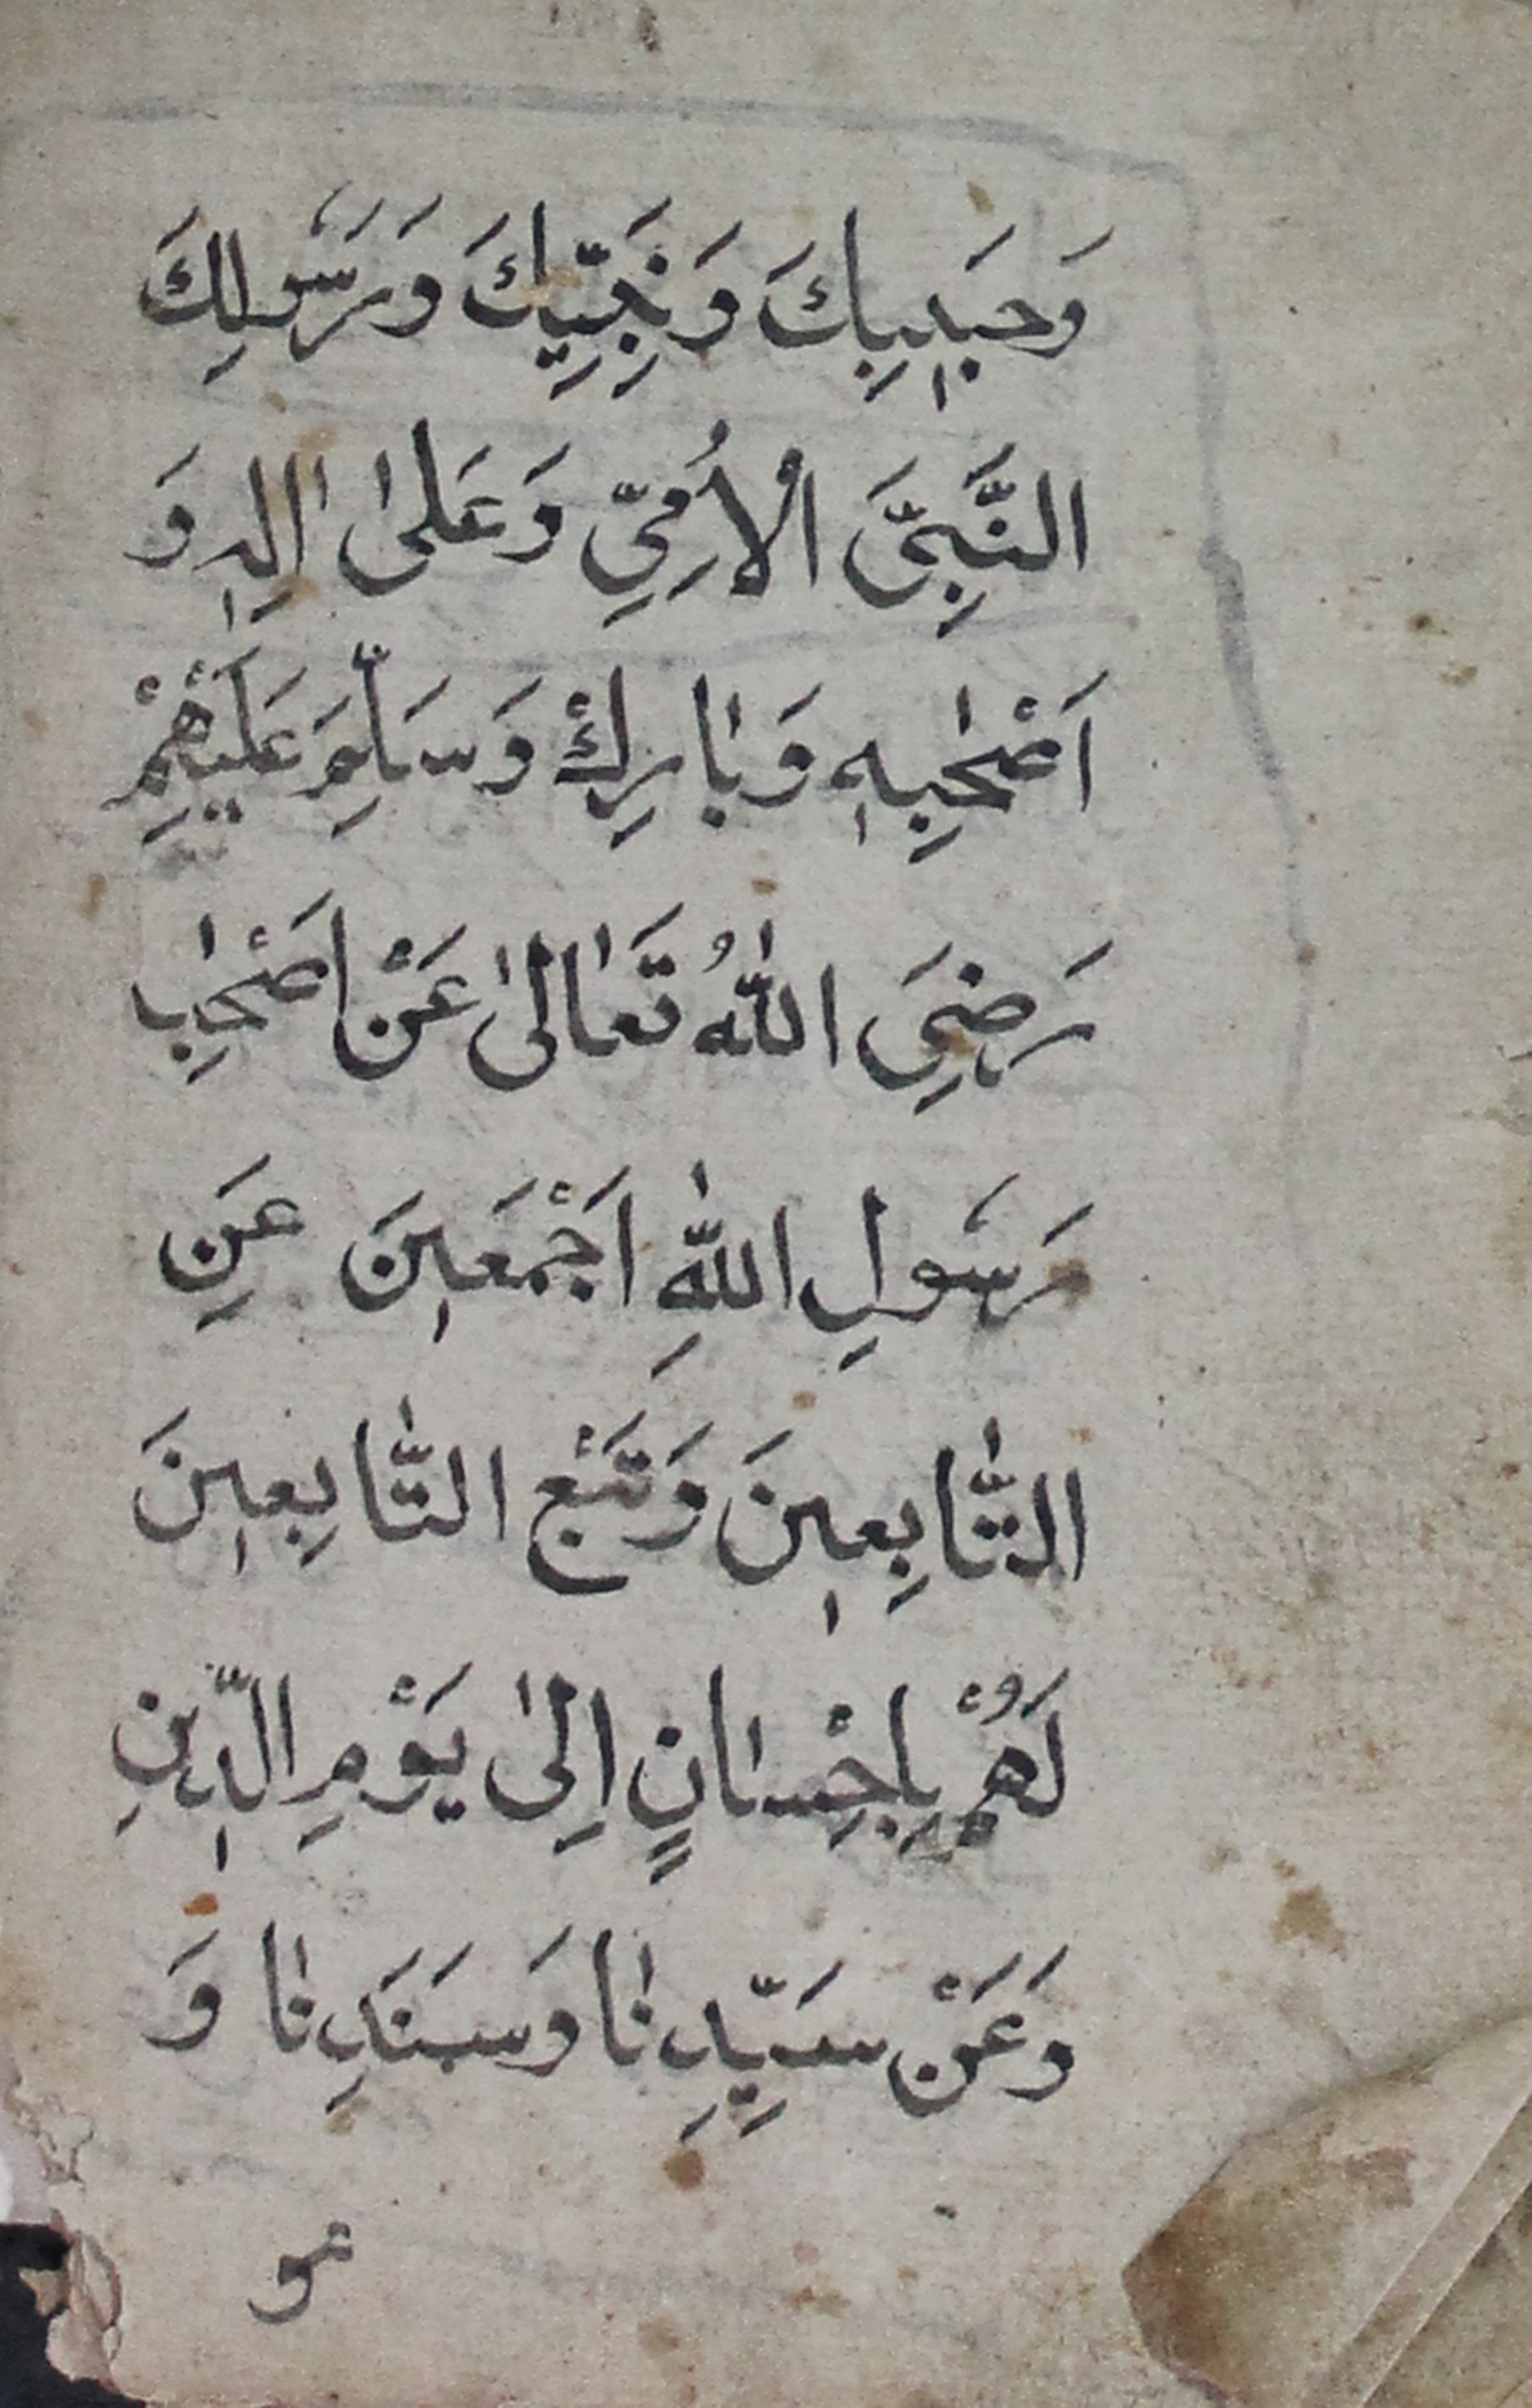 وَحَبِيبِكَ وَنَجِيِّكَ وَرَسُولِكَ
النَّبِيِّ الْأُمِّيِّ وَعَلٰى اٰلِهٖ وَ
اَصْحٰبِهٖ وَبٰارِكْ وَسَلِّمْ عَلَيْهِمْ
رَضِيَ اللّٰهُ تَعٰالٰى عَنْ اَصْحٰبِ
رَسُولِ اللّٰهِ اَجْمَعٖينَ عَنِ
التّٰابِعٖينَ وَتَبْعِ التّٰابِعٖينَ
لَهُمْ بِاِحْسٰانٍ اِلٰى يَوْمِ الدّٖينِ
وَعَنْ سَيِّدِنٰا وَسَنَدِنٰا وَ